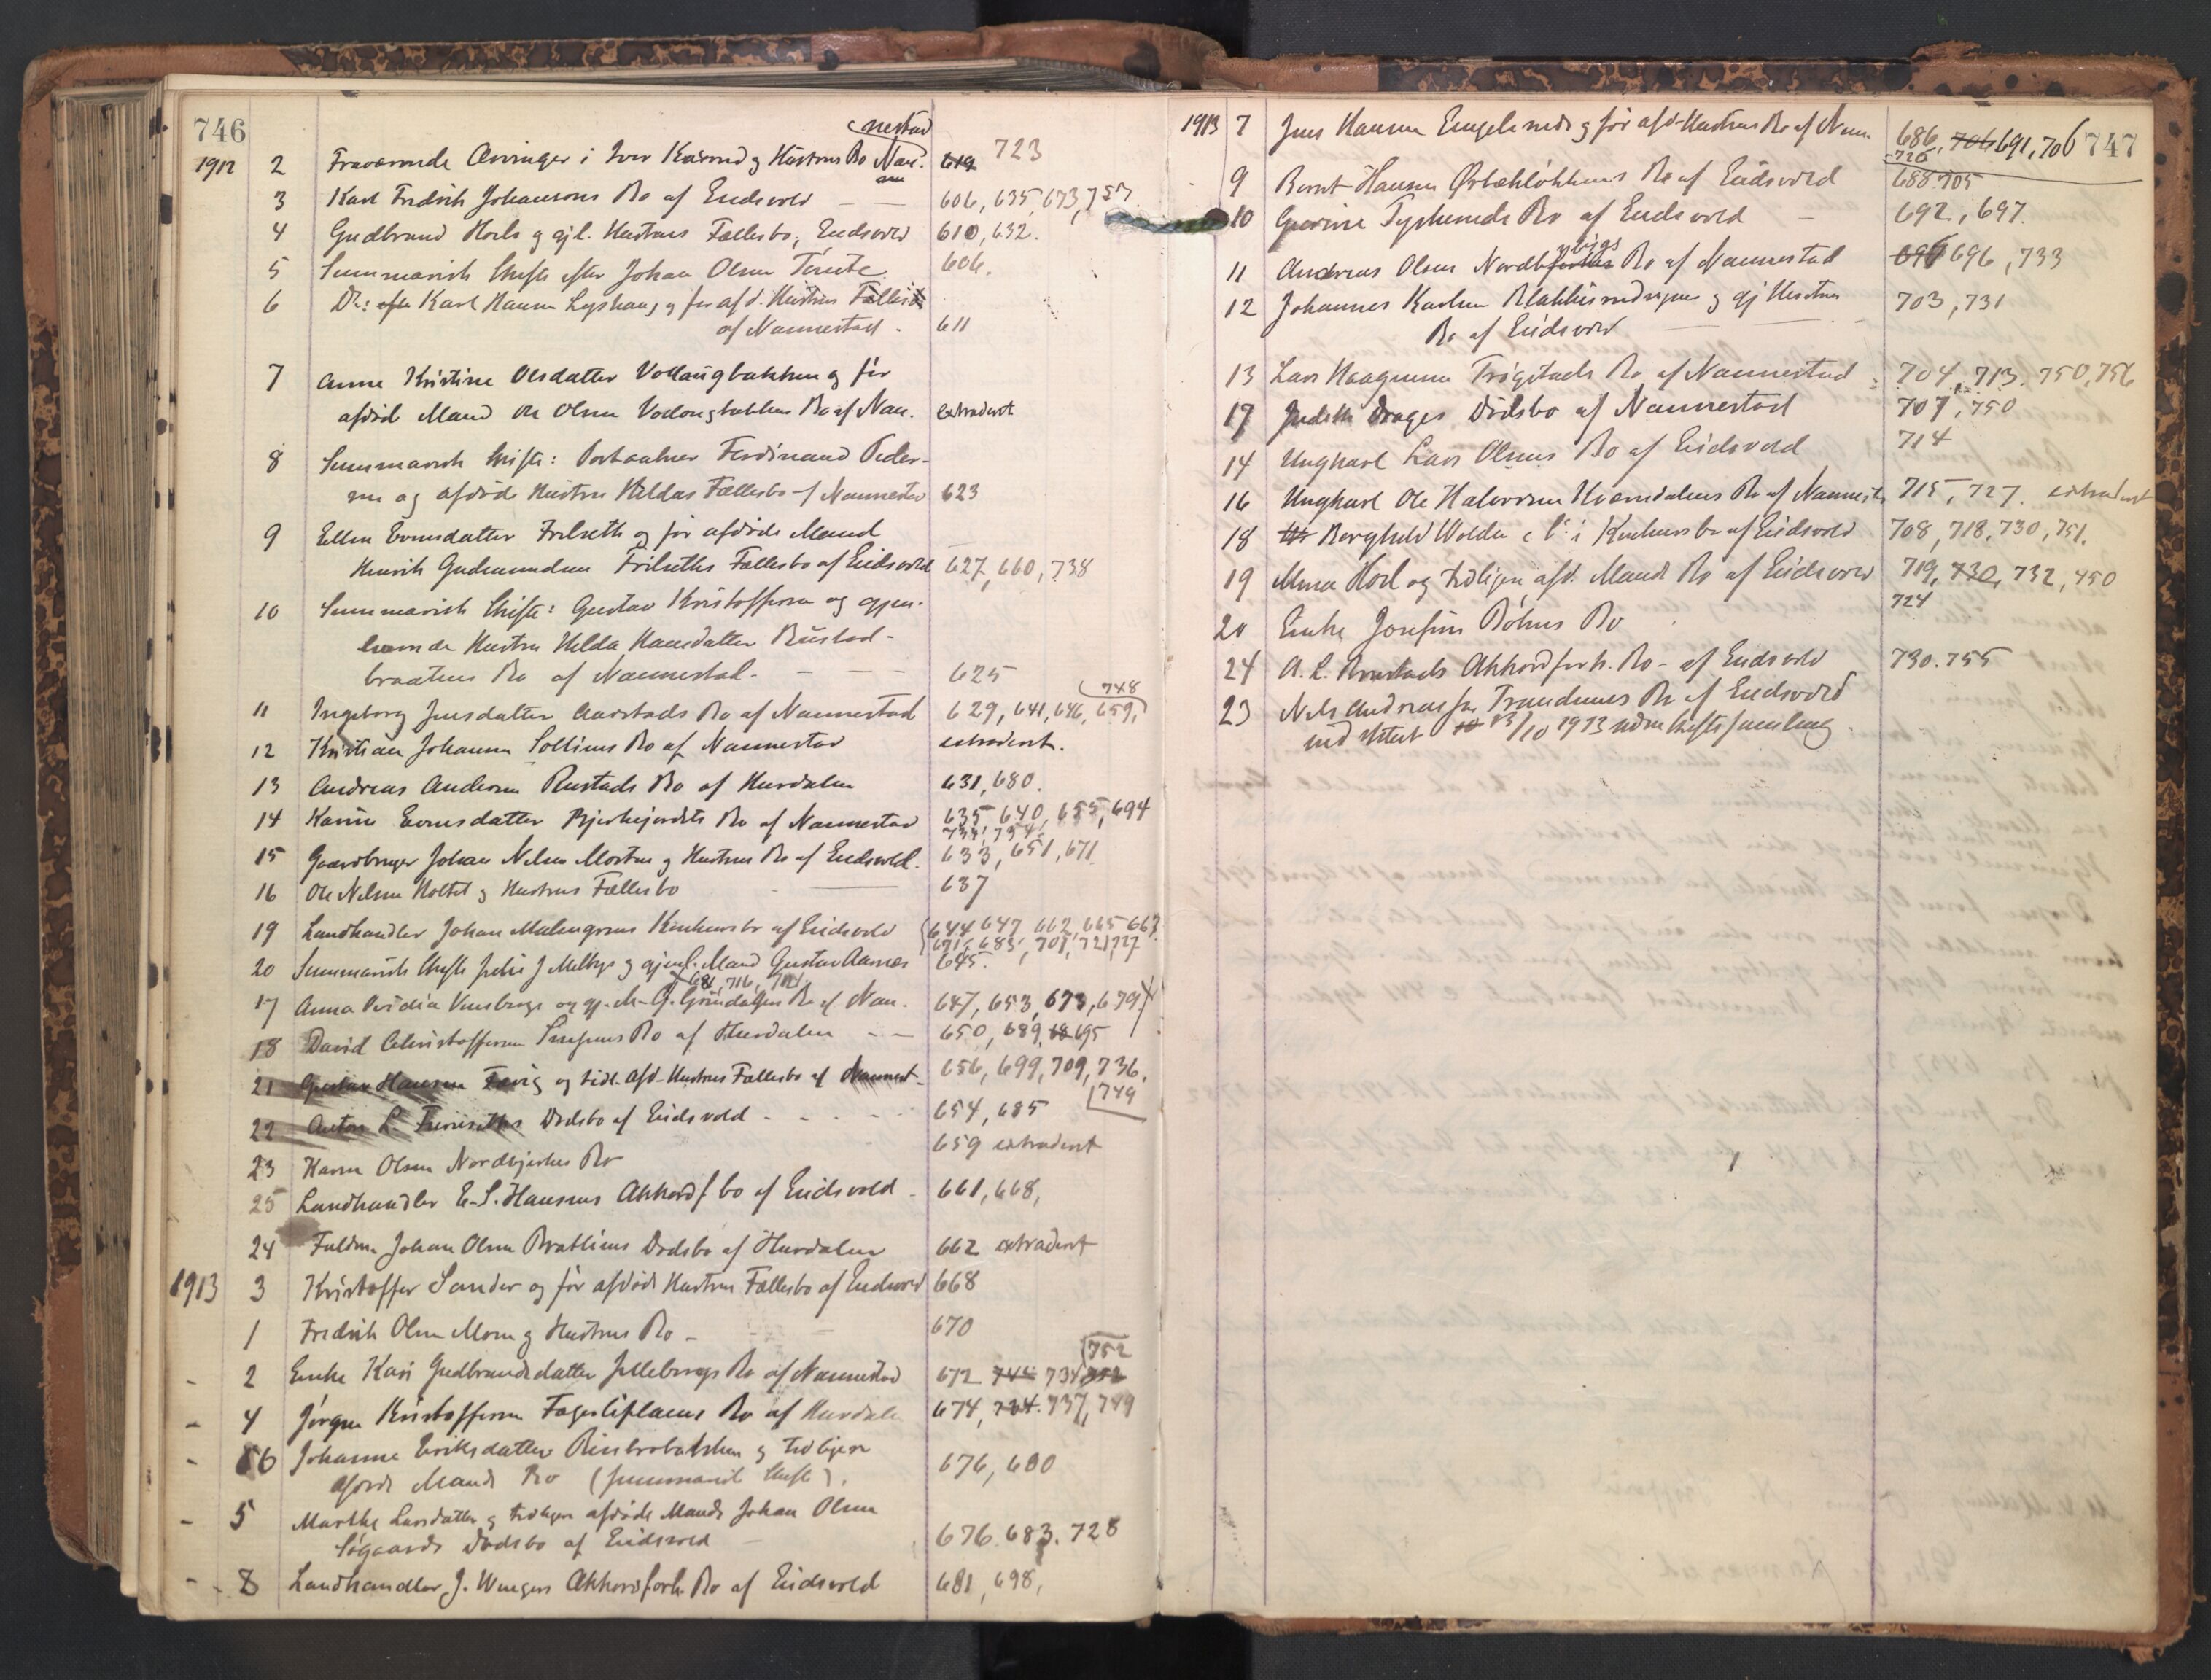 746
nestad
1912 2 Fraværende Arvinger i Iver Knserud og Hustrus Bo Nan. 619 723
3 Karl Fredrik Johansens Bo af Eidsvold 606, 635, 673, 757
4 Gudbrand Hoels og gjl. Hustrus Fællesbo, Eidsvold 610, 632.
5 Summarisk Skifte efter Johan Olsen Tømte 606.
6 Do: efter Karl Hansen Lyshaug og før afd. Hustrus Fællesbo
af Nannestad. 611
7 Anne Kristine Olsdatter Vollaugbakken og før
afdød Mand Ole Olsen Vollaugbakken Bo af Nan. extradert
8 Summarisk Skifte: Ferdinand Peder-
sen og afdøde Hustru Hildas Fællesbo af Nannestad 623
9 Ellen Evensdatter Frilseth og før afdøde Mand
Henrik Gudmundsen Frilseths Fællesbo af Eidsvold 627, 660, 738
10 Summarisk Skifte: Gustav Kristoffersen og gjen-
levende Hustru Hilda Hansdatter Rustad-
braatens Bo af Nannestad. 625
748
11 Ingeborg Jensdatter Aarstads Bo af Nannestad 629, 641, 646, 659,
12 Kristian Johannes Sollies Bo af Nannestad extradert.
13 Andreas Andersen Rustads Bo af Hurdalen 631, 680.
14 Karine Evensdatter Bjerkejordets Bo af Nannestad 635 640, 655, 694
733, 734
15 Gaardbruger Johan Nelsen Morten og Hustrus Bo af Eidsvold. 633, 651, 671
16 Ole Nelsen Holtet og Hustrus Fællesbo 637
19 Landhandler Johan Malmgrens Konkursbo af Eidsvold 644 647 662, 665 667
671, 683, 701, 721, 727
20 Summarisk Skifte Julie J Melbys og gjenl. Mand Gustav Aarnes 645.
681, 716, 711
17 Anna Vensbergs og gj. M. G. Grindalgens Bo af Nan. 647, 653, 673, 679,
18 David Christoffersen Bo af Hurdalen 650, 689, 68 695
21 Gustav Hansen og tidl. afd. Hustrus Fællesbo af Nannest. 656, 699, 709, 736,
749
22 Anton L. Dødsbo af Eidsvold 654, 685
23 Karen Olsen Nordbjerkes Bo 659 extradert
25 Landhandler E. S. Hansens Akkordf. bo af Eidsvold 661, 668,
24 Fuldm. Johan Olsen Bratlies Dødsbo af Hurdalen 662 extradert
1913 3 Kristoffer Sander og før afdøde Hustrus Fællesbo af Eidsvold 668
1 Fredrik Olsen Moen og Hustrus Bo 670
752
- 2 Enke Kari Gudbrandsdatter Jelleborgs Bo af Nannestad 672 744 734 752
- 4 Jørgen Kristoffersen Fagerliplacens Bo af Hurdalen 674, 734. 737, 749
- 6 Johanne Eriksdatter og tidligere
afdøde Mands Bo (summarisk Skifte). 676, 680
- 5 Marthe Larsdatter og tidligere afdøde Mands Johan Olsen
Søgaards Dødsbo af Eidsvold 676. 683. 728
- 8 Landhandler J. Wengers Akkordforh. Bo af Eidsvold 681, 698,
747
1913 7 Jens Hansen Engelsruds og før afd. Hustrus Bo af Nann. 686, 706 691, 706
726
9 Bernt Hansen Ørbækløkkens Bo af Eidsvold 688 705
10 Gurine Tyskeruds Bo af Eidsvold 692, 697.
bygs
11 Andreas Olsen Bo af Nannestad 696 696, 733
12 Johannes Karlsen og gj Hustrus 703, 731
Bo af Eidsvold
13 Lars Haagensen Trøgstads Bo af Nannestad 704, 713. 750, 756
17 Judith Drages Dødsbo af Nannestad 707, 750
14 Ungkarl Lars Olsens Bo af Eidsvold 714
16 Ungkarl Ole Halvorsen Kværndalens Bo af Nannestad 715, 727. extradert
18 Borghild Wolden & Co i Konkursbo af Eidsvold 708, 718, 730, 751.
19 Mina Hoel og tidligere afd. Mands Bo af Eidsvold 719, 730, 732, 750
724
20 Enke Josefine Bøhns Bo
24 A. L. Akkordforh. Bo af Eidsvold 730. 755
23 Nels Andreassen Trandumes Bo af Eidsvold
indstiftet 13/10 1913 uden Skiftesamling.